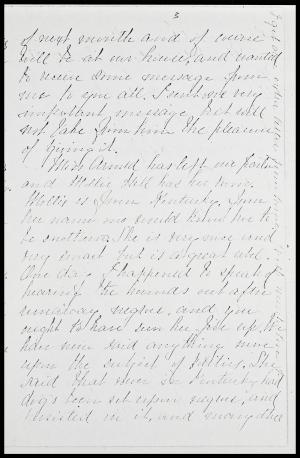 3
of next month and of course
will be at our house, and wanted
to receive some message from
me to you all. I sent one very
important message but will
not take from him the pleasure
of giving it.
Miss Arnold has left our parts
and Mollie Hill has her room.
Mollie is from Kentucky. From
her name one would know her to
be southern. She is very nice and
very smart but is a great
One day I happened to speak of
hearing the hounds out after
runaway negroes, and you
ought to have seen her fire up. We
have never said anything more
upon the subject of politics. She
said that never in Kentucky had
dogs been set upon negroes, and
insisted in it, and many other